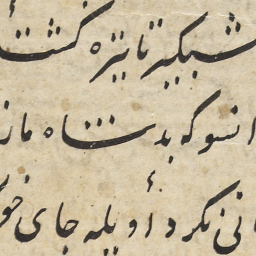 شبگیر تا تیره کشت
انسو که بد شاه ماز
نی نکرد او یله جای خو